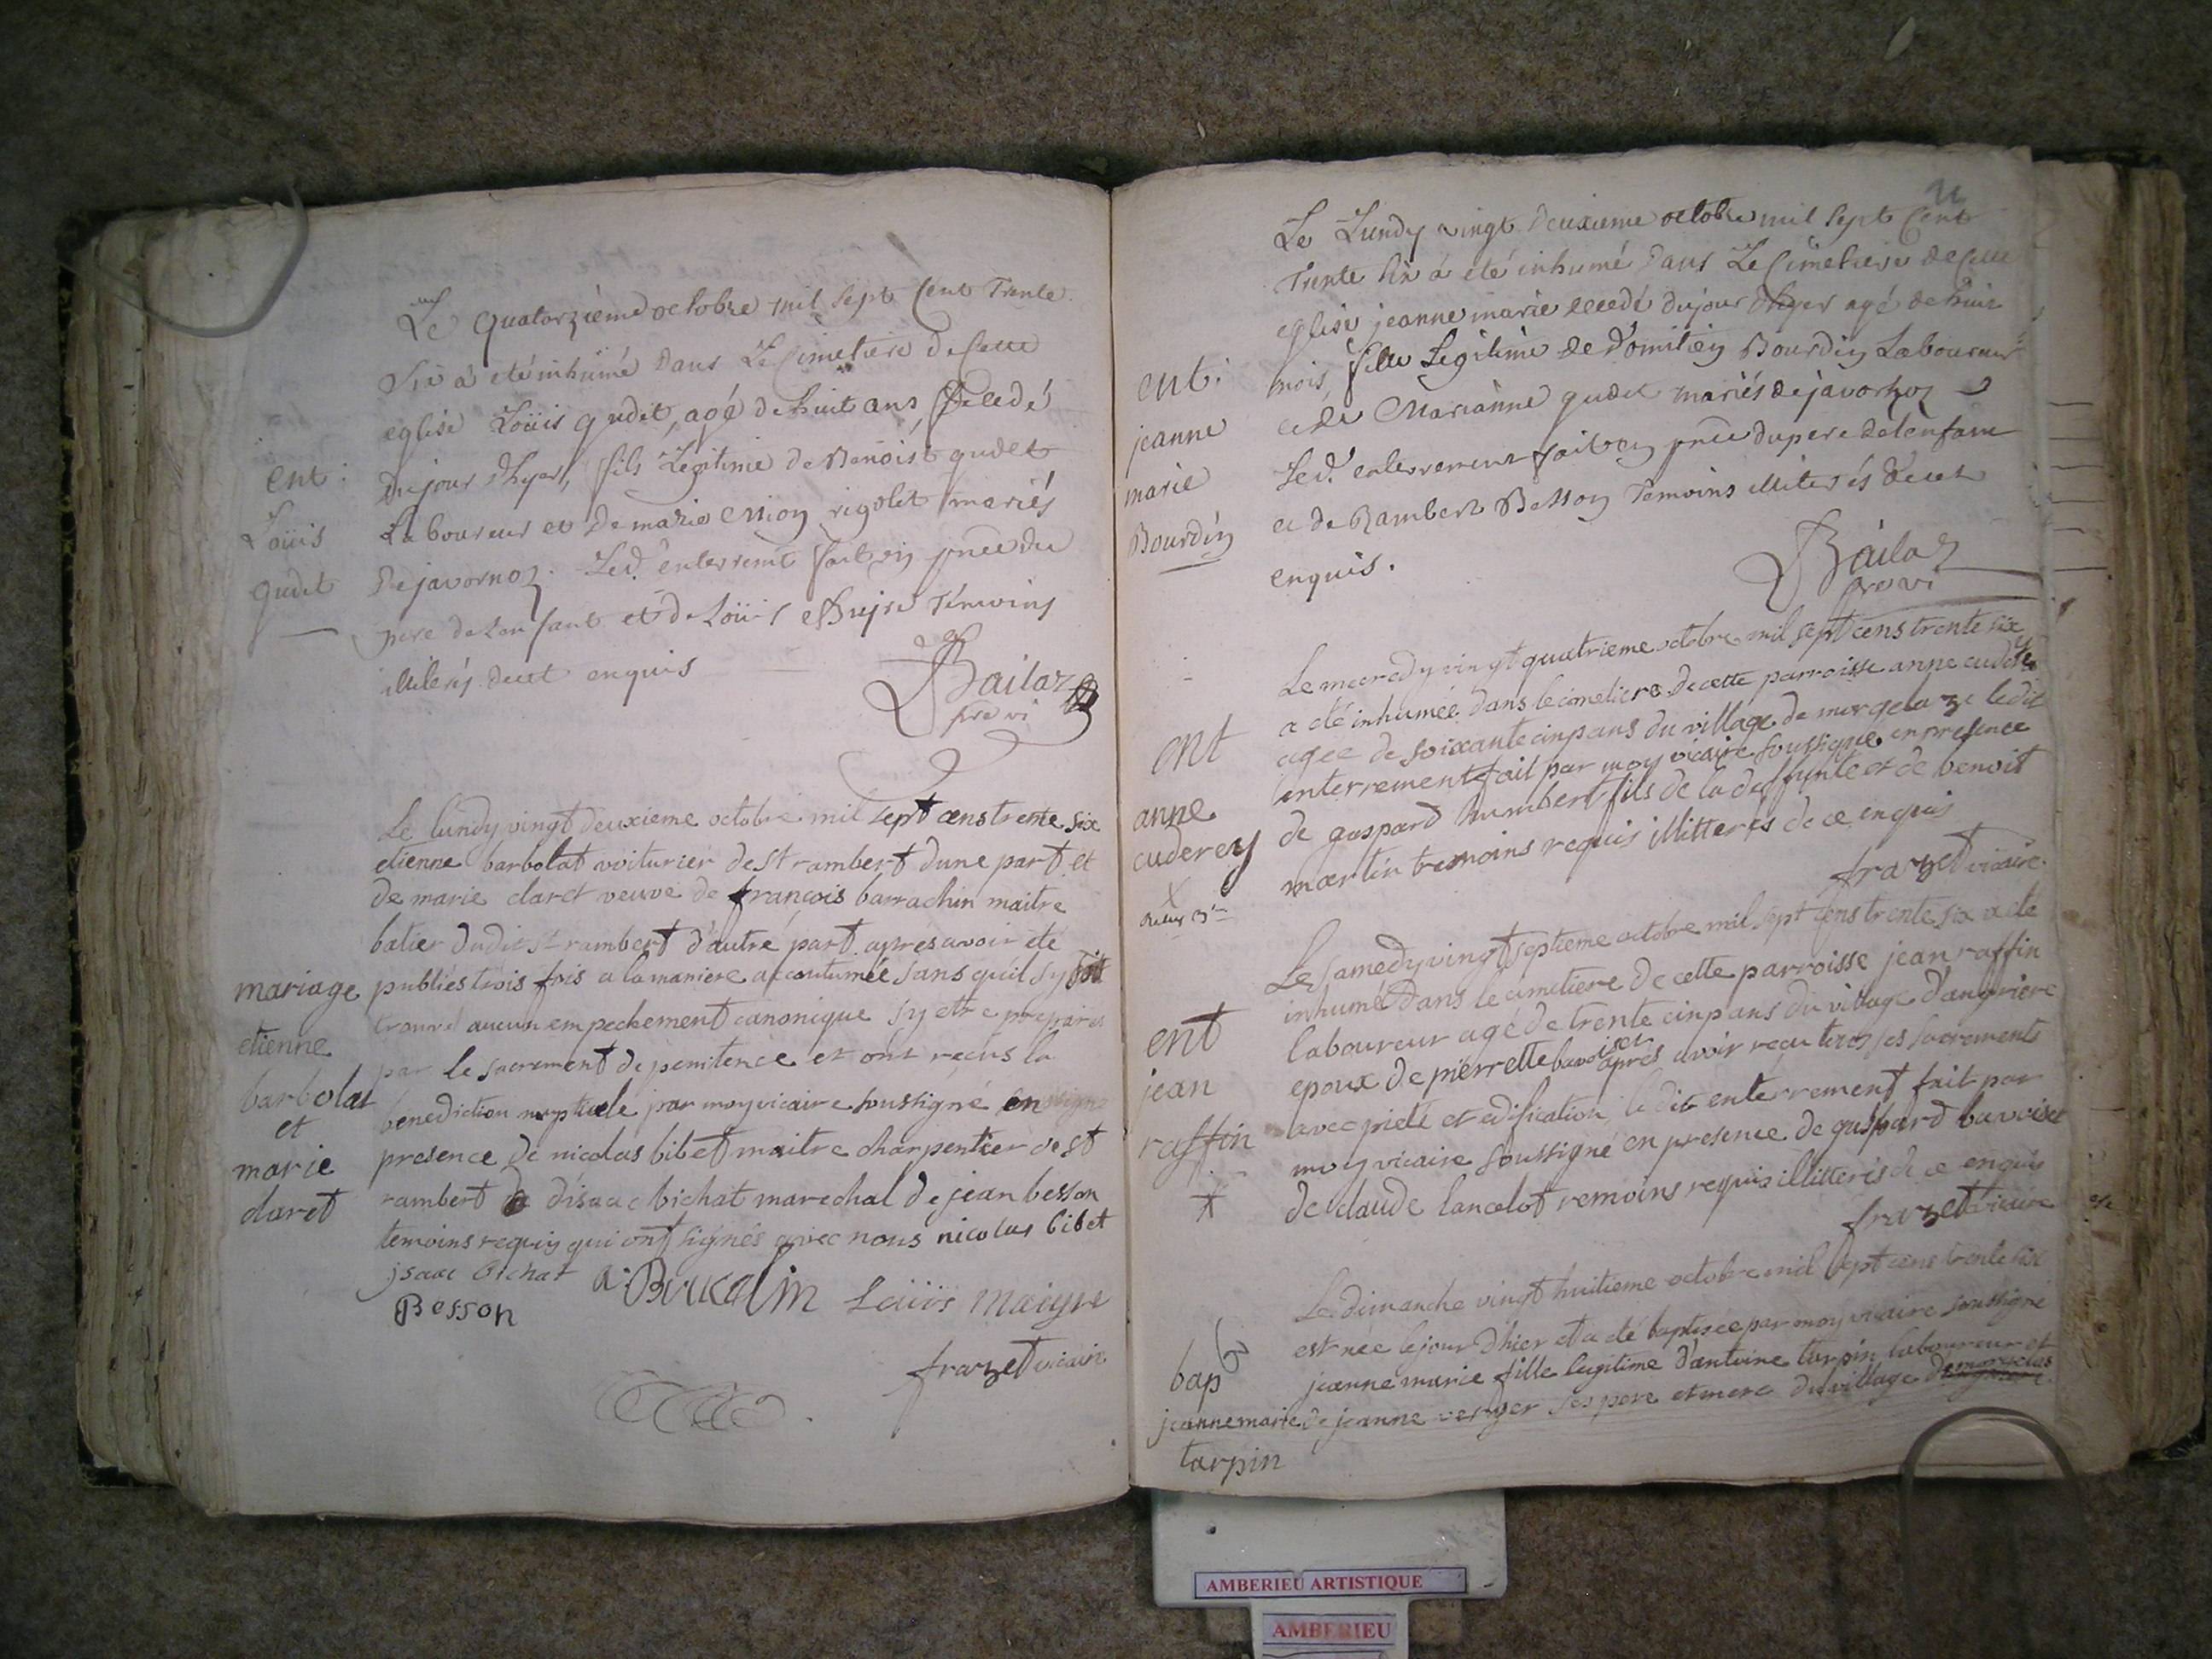 Le quatorzieme octobre mil sept cent trente
six a eté inhumé dans Le Cimetiere de Cette
eglise Loüis gudet, agé de huit ans, decedé
du jour d'hyer, fils Legitime de Benoist gudet
Laboureur et de marie rigolet mariés
de javornoz. Led. enterremt fait en pnce du
pere de Lenfant et de Loüis temoins
illiterés de cet enquis
Bailaz
pre vi
ent:
Loüis
gudet
Le lundy vingt deuxieme octobre mil sept cens trente six
etienne barbolat voiturier de st rambert dune part et
de marie claret veuve de françois barrachin maitre
batier dudit st rambert d'autre part apres avoir eté
publiés trois fois a la maniere accoutumée sans qu'il sy soit
trouvé aucun empechement canonique sy etre preparés
par le sacrement de penitence et ont reçus la
benediction nuptiele par moy vicaire soussigné en
presence de nicolas bibet maitre charpentier de st
rambert disaac bichat marechal de jean besson
temoins requis qui ont signés avec nous nicolas bibet
jsaac bichat
Loüis maigre
Besson
frazet vicaire
mariage
etienne
barbolat
et
marie
claret
Le Lundy vingt deuxieme octobre mil sept Cent
Trente six a eté inhumé dans Le Cimetiere de Cette
eglise jeanne marie decedé du jour d'hyer agé de huit
mois, fille Legitime de Domitien Bourdin Laboureur
et de Marianne gudet mariés de javornoz
Led. enterrement fait en pnce du pere de lenfant
et de Rambert Besson Temoins illiterés de cet
enquis.
Bailaz
pre vi
ent:
jeanne
marie
Bourdin
Le mecredy vingt quatrieme octobre mil sept cens trente six
a eté inhumée dans le cimetiere de cette parroisse anne cuderey
agee de soixante cinq ans du village de morgelaz ledit
enterrement fait par moy vicaire soussigné en presence
de gaspard humbert fils de la deffunte et de benoist
martin temoins requis illitterés de ce enquis
frazet vicaire
ent
anne
cuderey
Le samedy vingt septieme octobre mil sept cens trente six a eté
inhumé dans le cimetiere de cette parroisse jean raffin
laboureur agé de trente cinq ans du village d'angriere
epoux de pierrette bavoiset apres avoir reçu tous ses sacrements
avec pieté et edification ledit enterrement fait par
moy vicaire soussigné en presence de gaspard bavoiset
de claude lancelot temoins requis illitterés de ce enquis
frazet vicaire
ent
jean
raffin
Le dimanche vingt huitieme octobre mil sept cens trente six
est née le jour d'hier et a eté baptisée par moy vicaire soussigné
jeanne marie fille legitime d'antoine tarpin laboureur et
de jeanne verger ses pere et mere du village
bap
jeanne marie
tarpin
AMBERIEU ARTISTIQUE
AMBERIEU